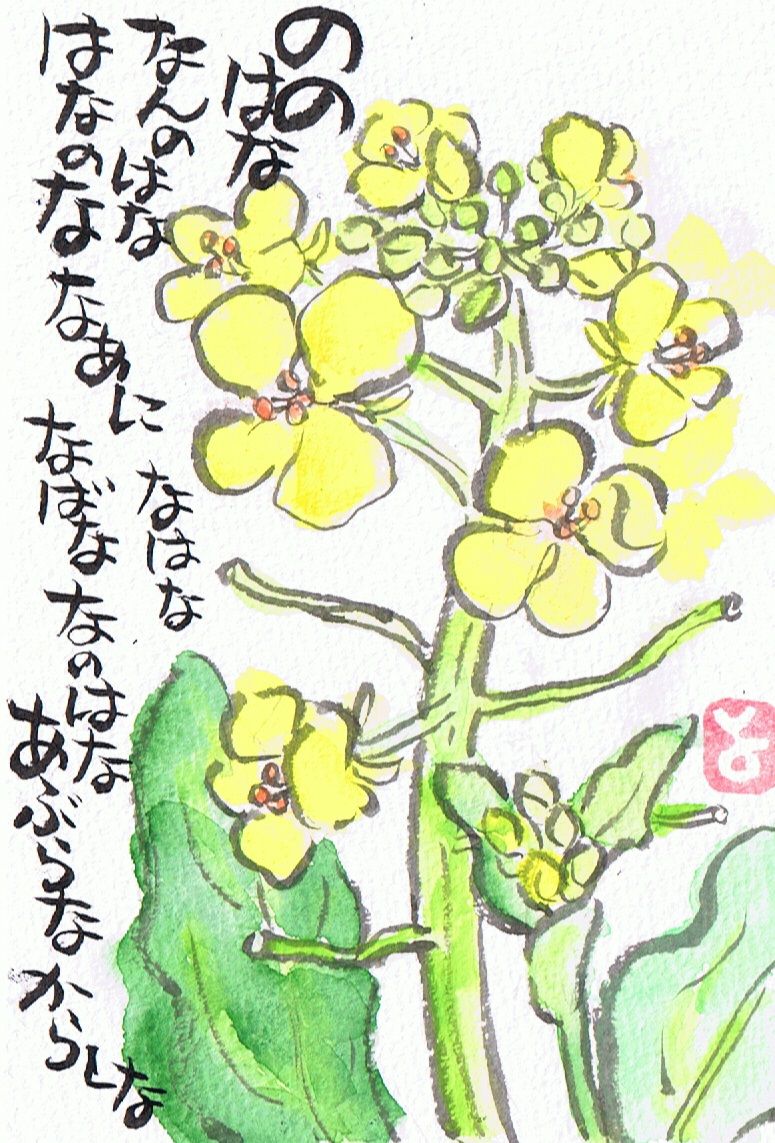 のの
はな
なんの はな
はなのな なあに
なはな
なばな なのはな
あぶらな からしな